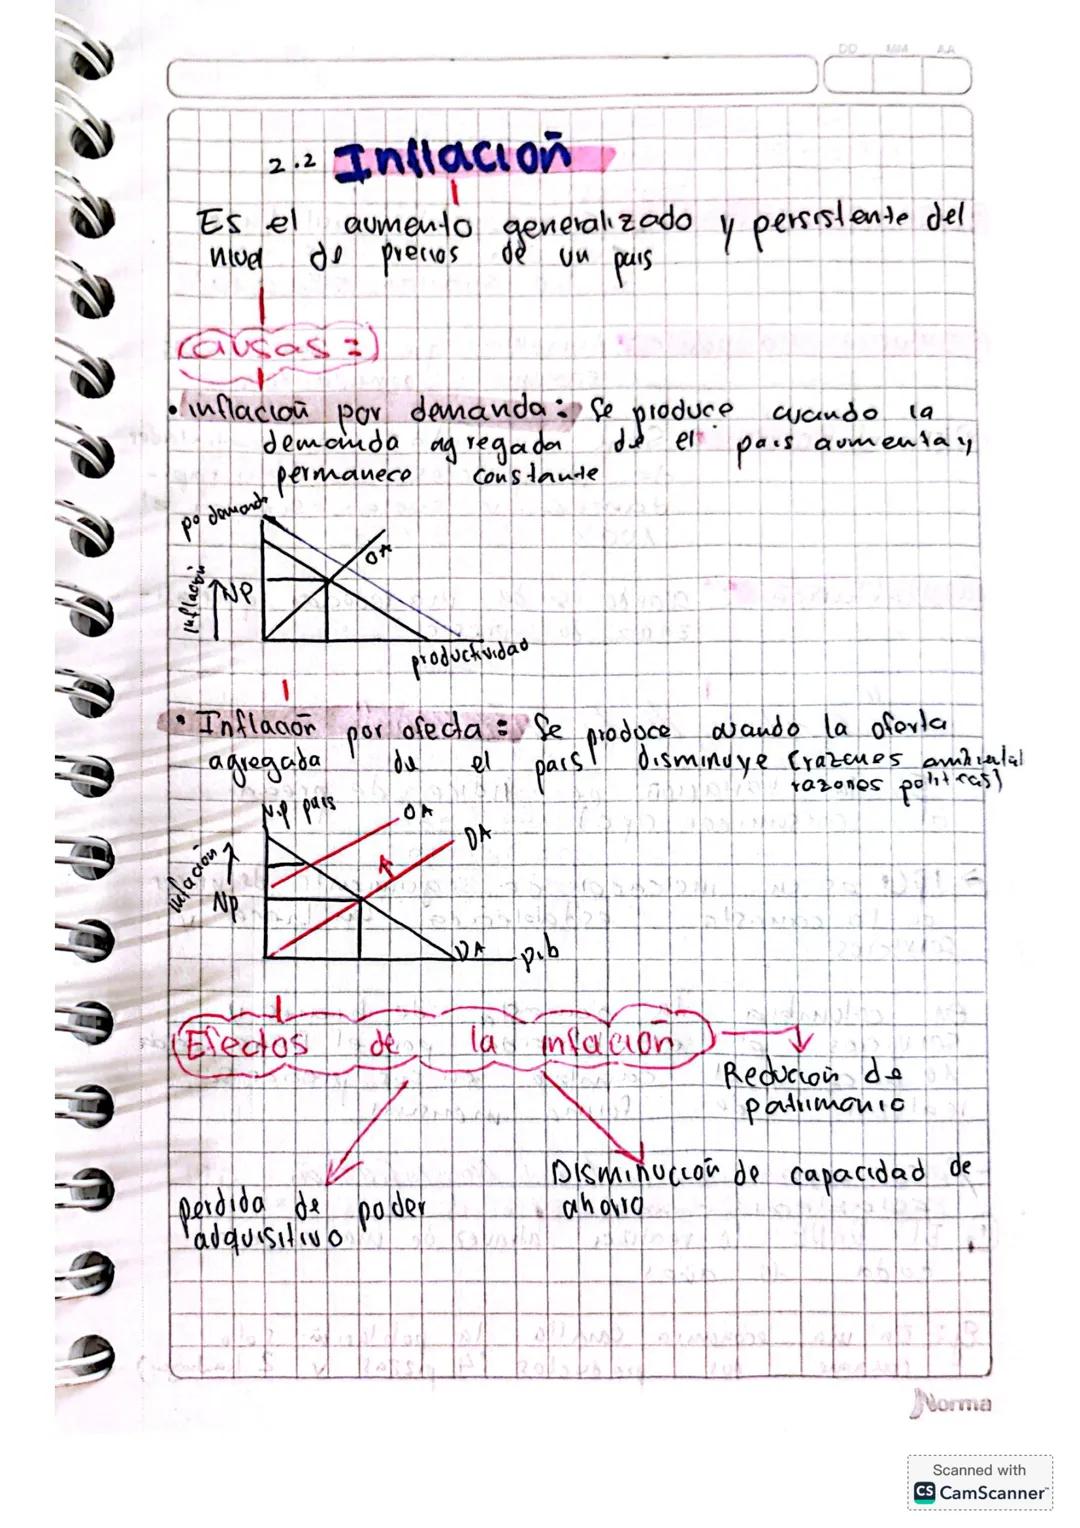 DD MM AA
2.2 Inflacioñ
Es el aumento generalizado y persistente del
nivel de precios de un pais
Causas:
• inflacioñ por demanda: Se produce cuando la
demanda agregada de el pais aumenta y
permanece constante
po demanda
OA
Inflacion
NP
productividad
• Inflacioñ por ofecta: Se produce cuando la oferta
agregada de el pais disminuye (razones ambiental
razones politicas)
N.p pais
OA
DA
Inflacion
NP
DA
p.b
Efectos de la inflacioñ
Reducioñ de
patrimonio
Disminuccioñ de capacidad de
ahorro
perdida de poder
adquisitivo
Norma
Scanned with
CS CamScanner